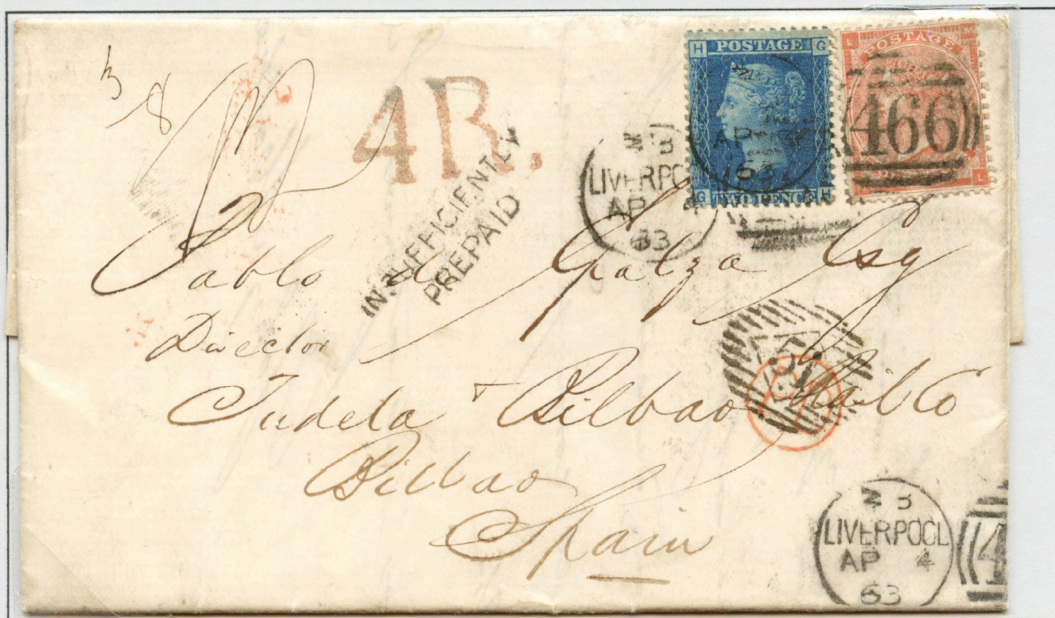 3
8
4R.
INSUFFICIENTLY
PREPAID
H POSTAGE G
G TWO PENCE H
L POSTAGE
L
466
LIVERPOOL
AP 4
63
Pablo de Galza Esq
Director
Tudela & Bilbao Rail Co
Bilbao
Spain
LIVERPOOL
AP 4
63
4